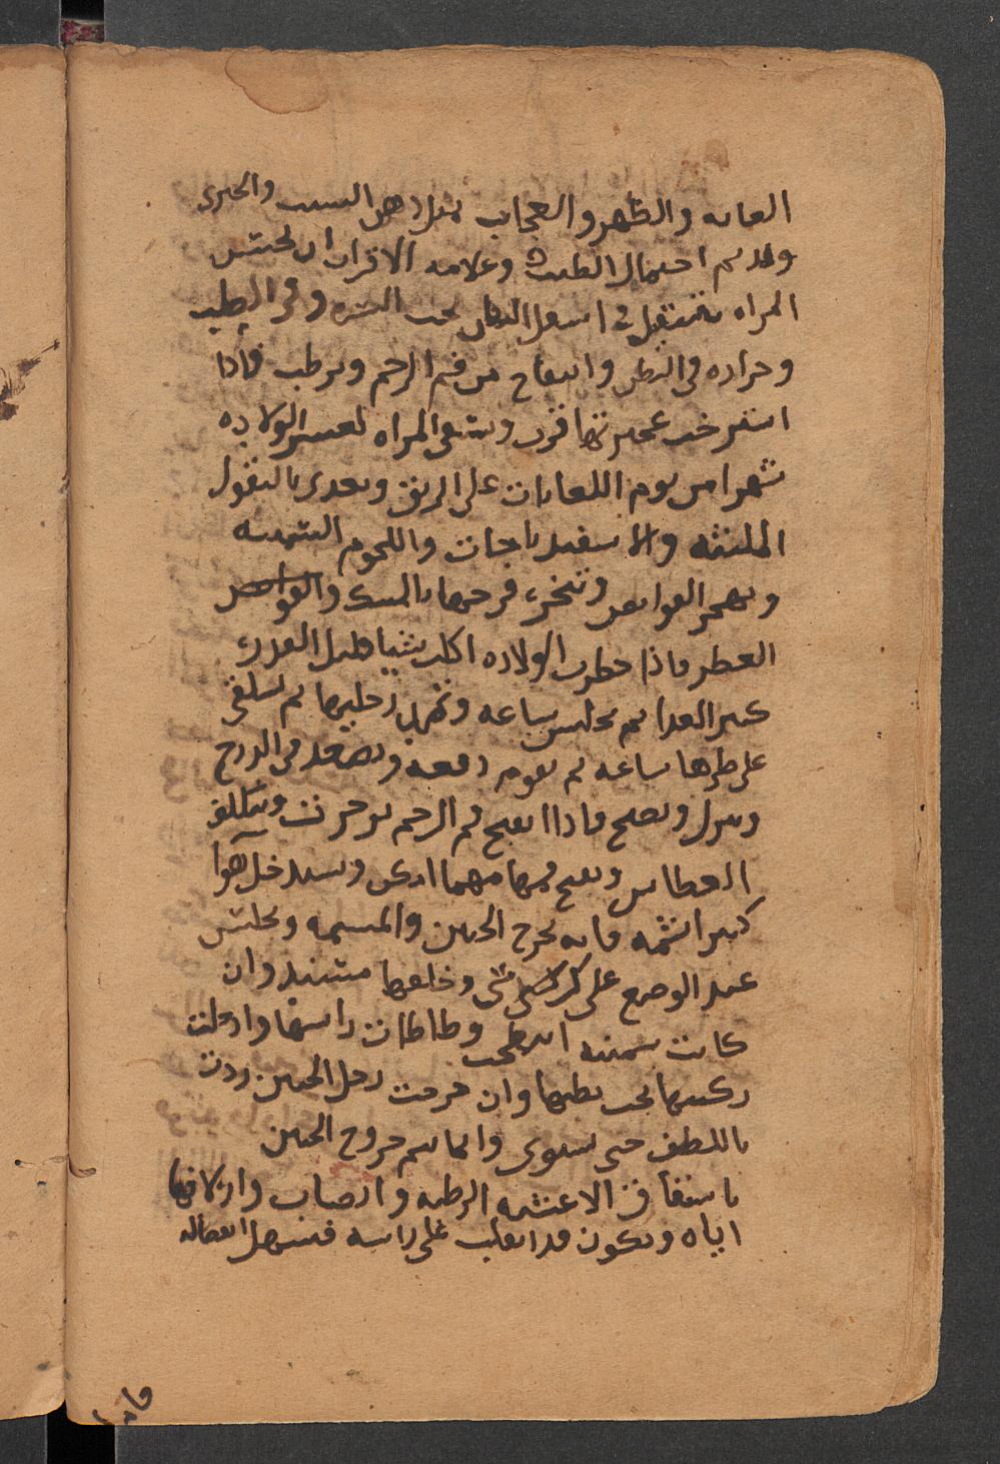 العانه والظهر والعجان بمثل دهن السبت والخيرى
ولا يديم احتمال الطيب وعلامه الاقراب ان تحتبس
المراه بثقل فى اسفل البطن تحت السره وفى الصلب
وحراره فى البطن وانتفاخ من فم الرحم وترطب فاذا
استرخت عجيزتها قرب وينبغى المراه لعسر الولاده
شهرا من يوم اللعابات على الريق وتغدى بالبقول
الملينه والاسفيدباجات واللحوم السمينه
وتهجر القوابض وتبخر فرجها بالمسك والقوابض
العطر فاذا حضرت الولاده اكلت شيا قليل القدر
كثير الغدا ثم تجلس ساعه وتمد رجليها ثم تستلقى
على ظهرها ساعه ثم تقوم دفعه وتصعد فى الدرج
وتنزل وتصيح فاذا انفتح فم الرحم تزحرت وتتكلف
العطاس وتفتح فمها مهما امكن وتستدخل هوا
كثيرا تشمه فانه يخرج الجنين والمشيمه وتجلس
عند الوضع على كرسى وخلفها مستند وان
كانت سمينه انبطحت وطاطات راسها وادخلت
ركبتيها تحت بطنها وان خرجت رجل الجنين ردت
باللطف حتى يستوى وانما يتم خروج الجنين
بانشقاق الاغشيه الرطبه وانصباب وازلاقها
اياه ويكون قد انقلب على راسه فيسهل انفصاله
فاما